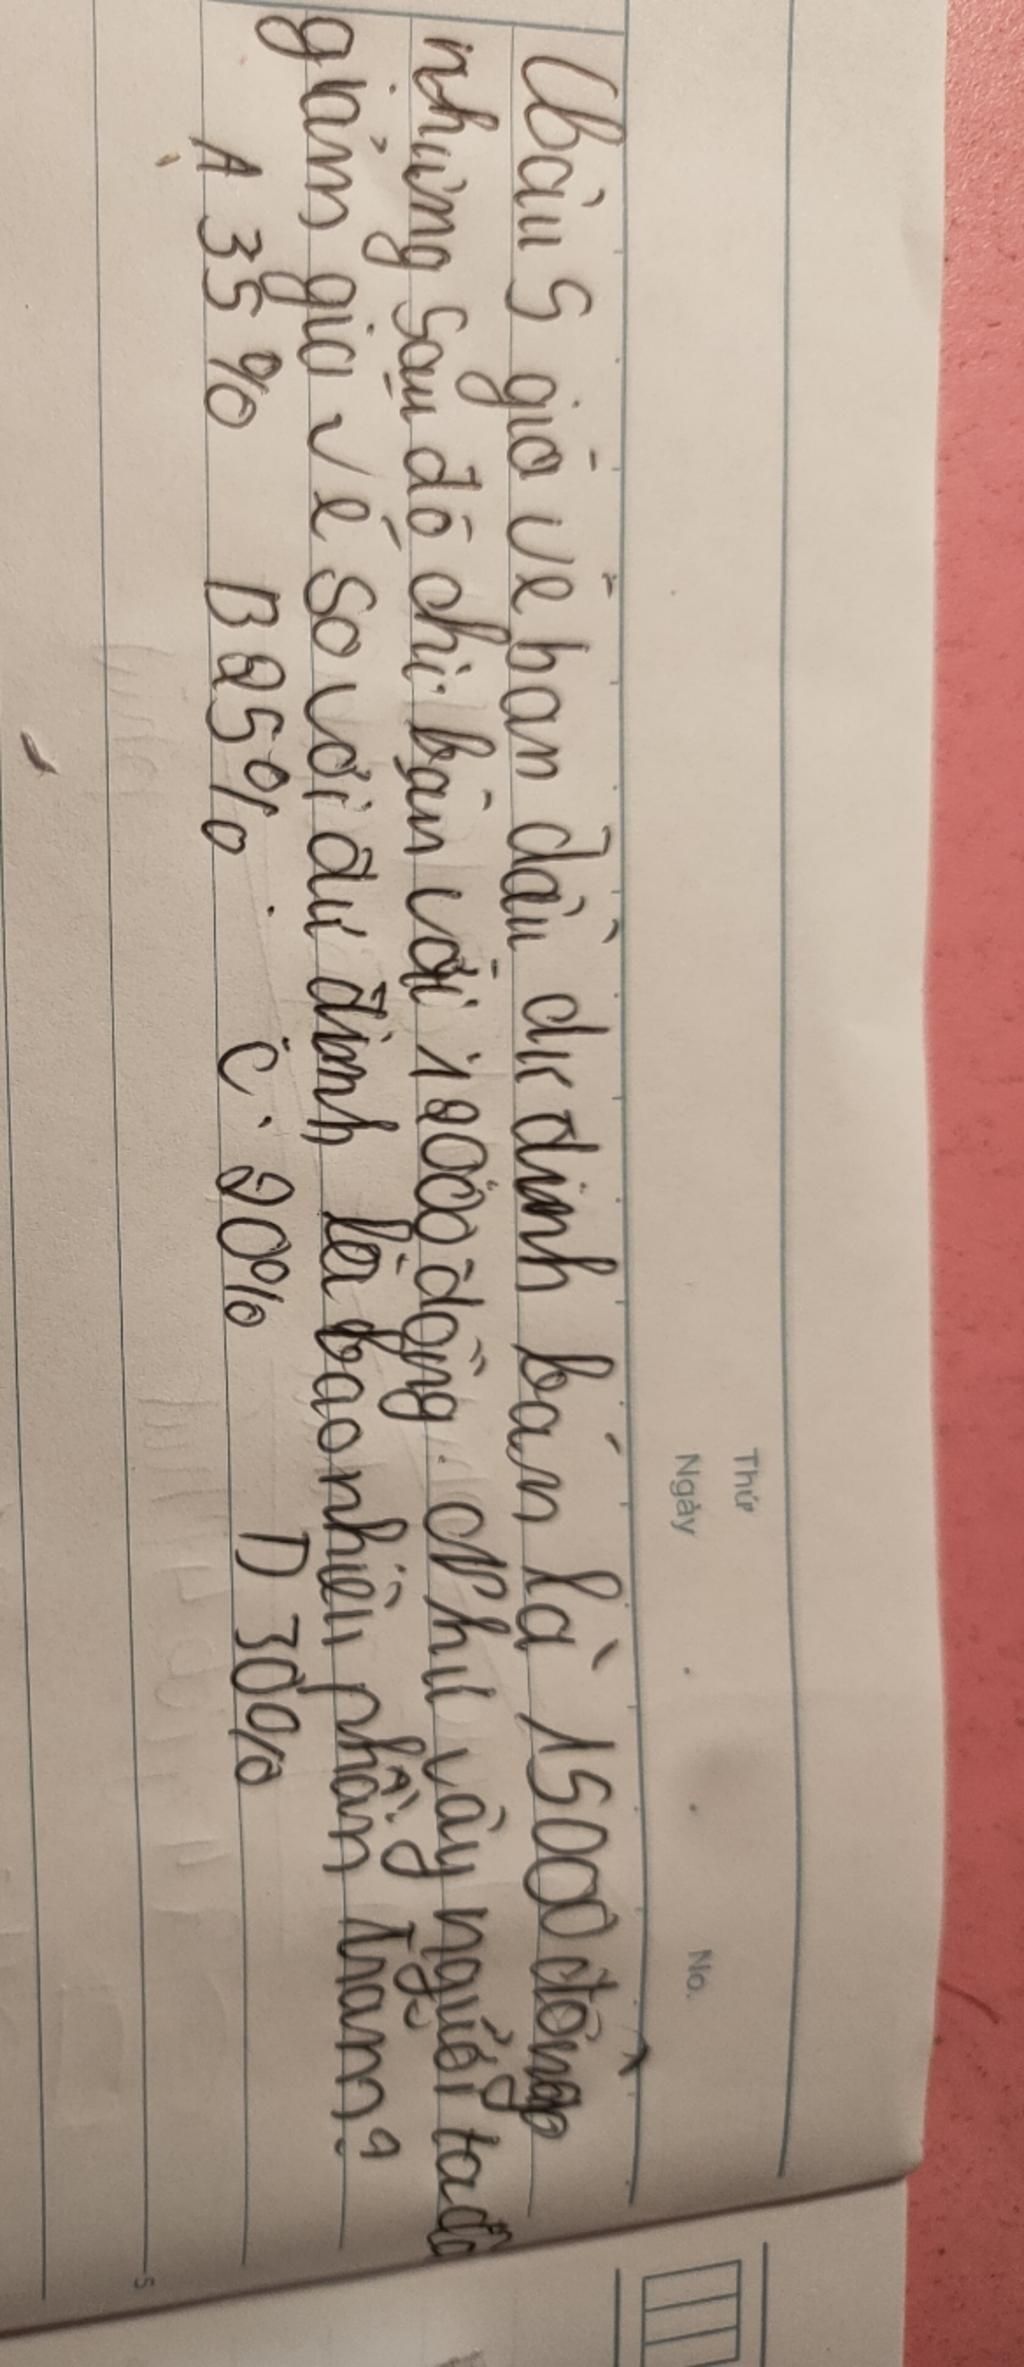 Thứ
Ngày
No.
Câu 5 giá vé ban đầu dự định bán là 15000 đồng
nhưng sau đó chỉ bán với 12000 đồng. Như vậy người ta đã
giảm giá vé so với dự định là bao nhiêu phần trăm?
A 35% B 25% C. 20% D 30%
5